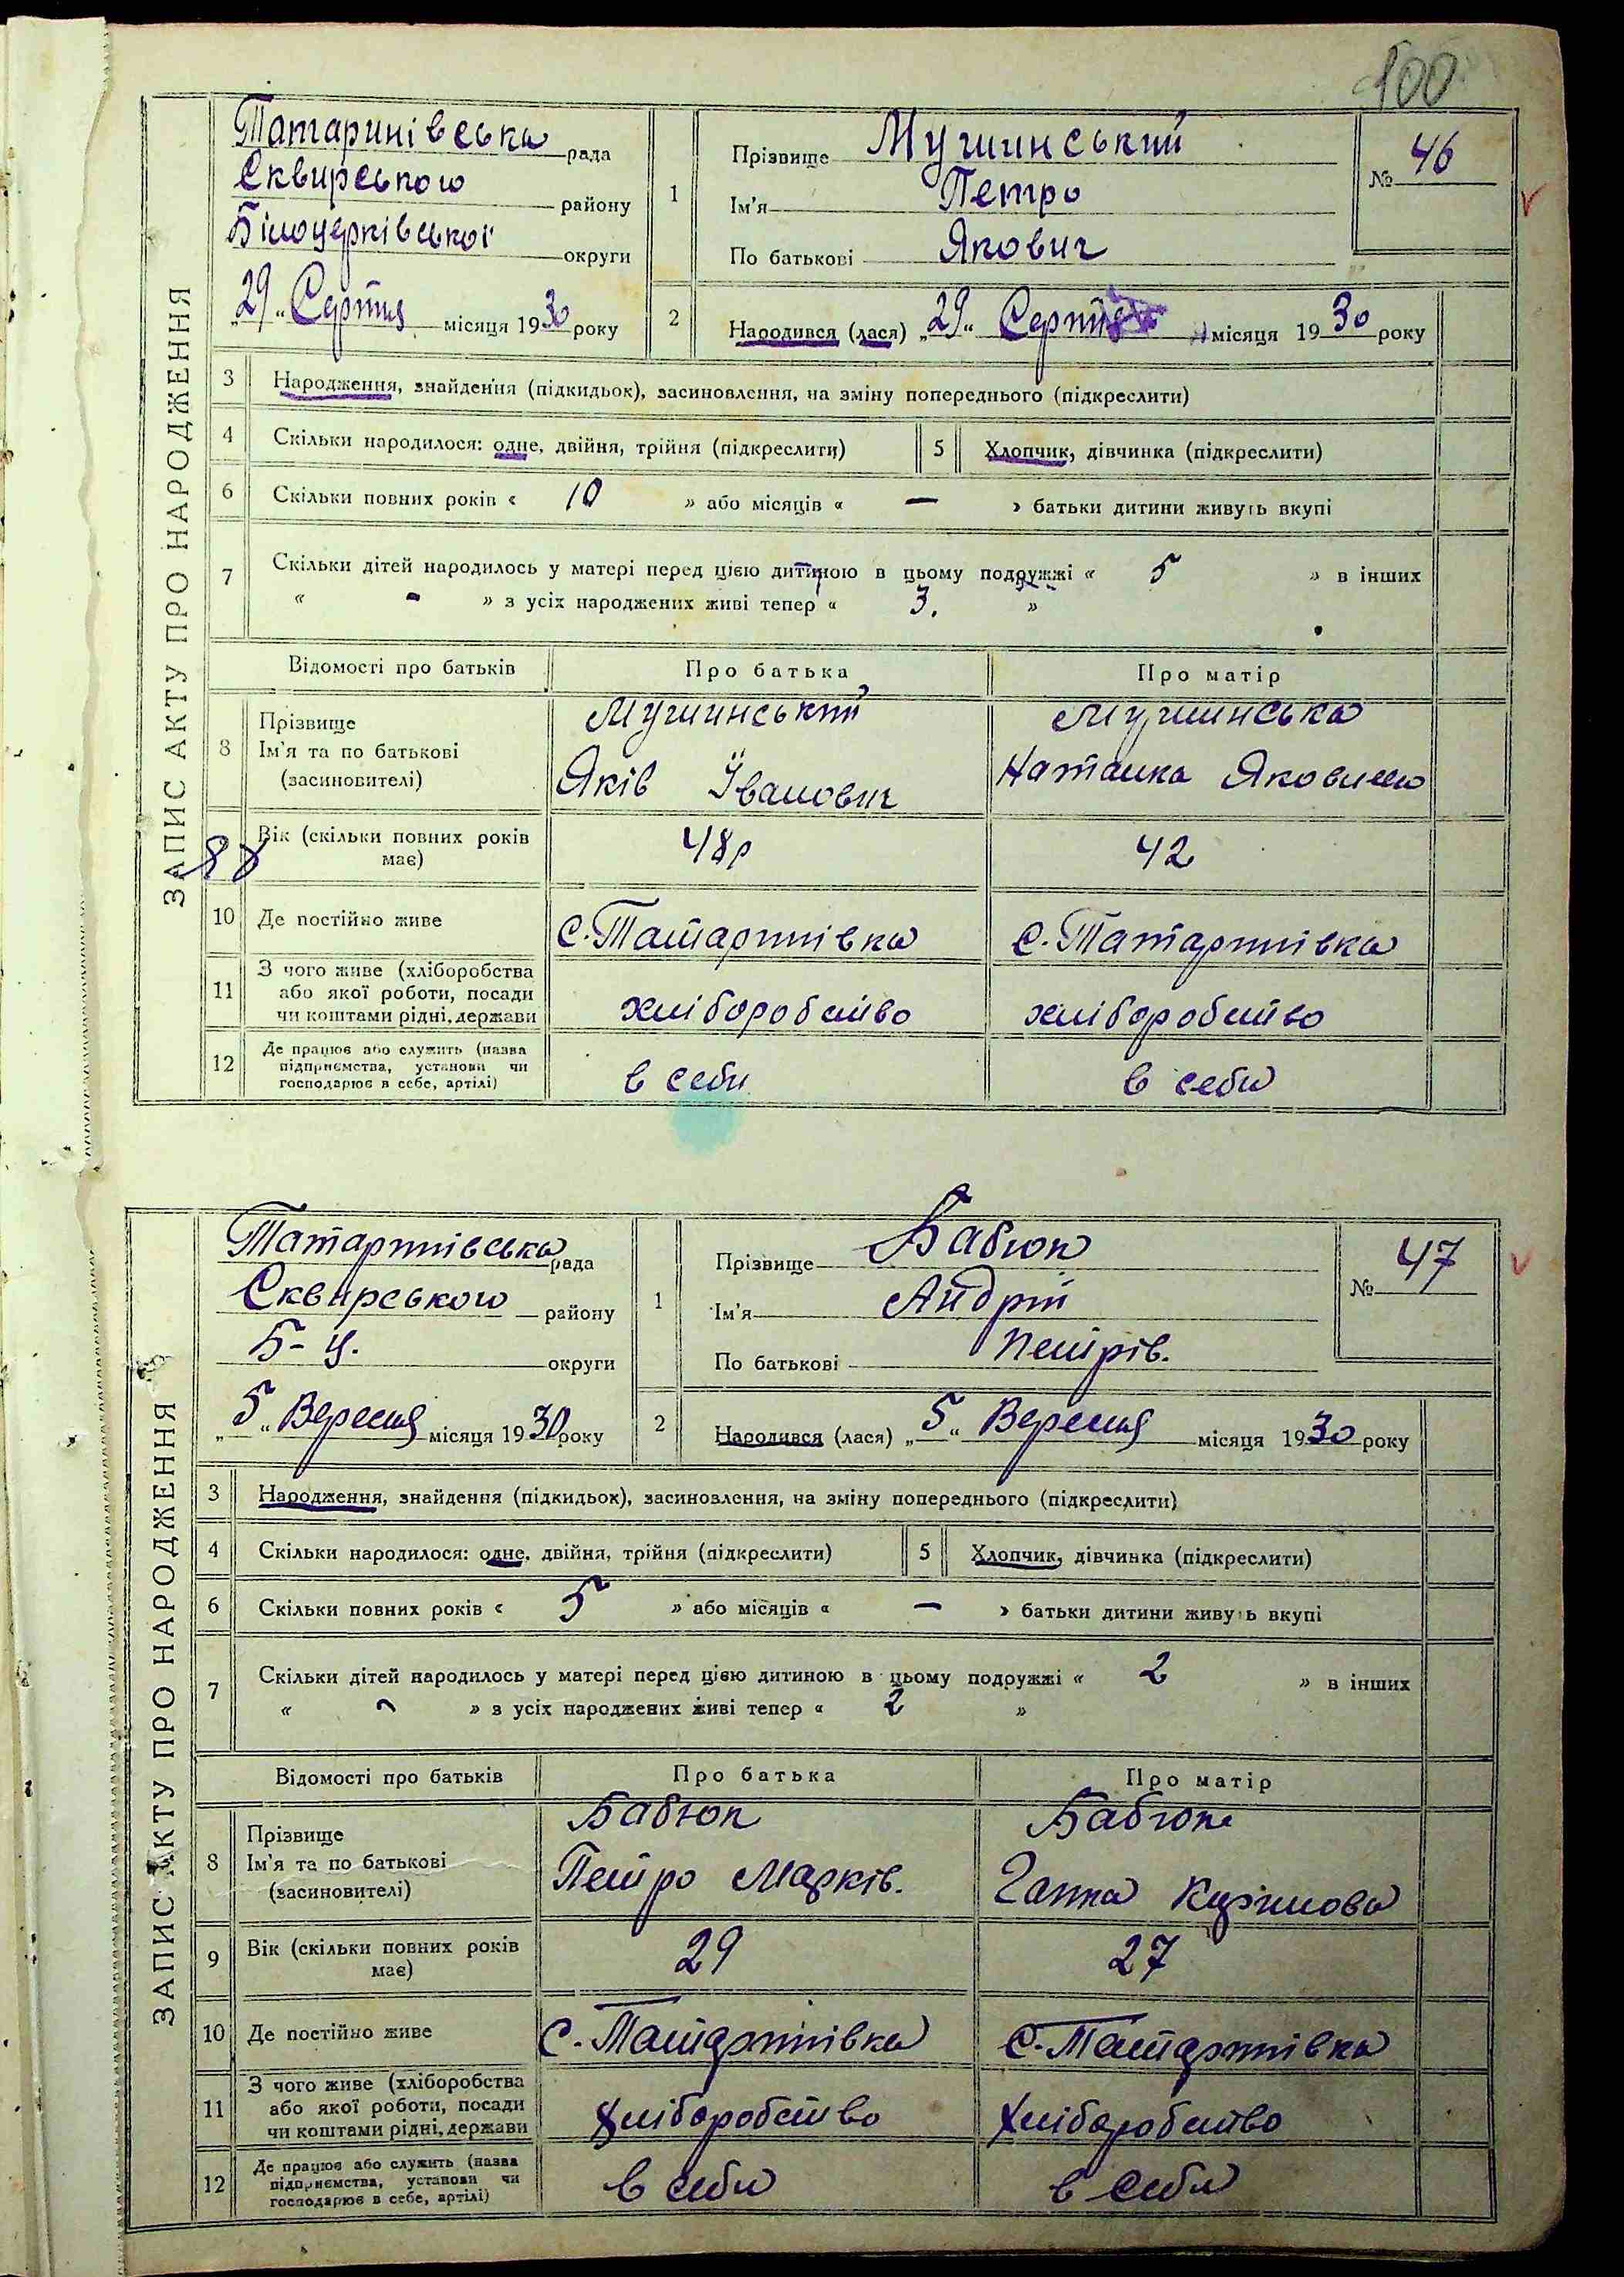 100
ЗАПИС АКТУ ПРО НАРОДЖЕННЯ
Татаринівська рада
Сквирського району
Білоцерківської округи
„29“ Серпня місяця 1930 року
1 Прізвище Мушинський
Ім'я Петро
По батькові Якович
№ 46
2 Народився (лася) „29“ Серпня місяця 1930 року
3 Народження, знайдення (підкидьок), засиновлення, на зміну попереднього (підкреслити)
4 Скільки народилося: одне, двійня, трійня (підкреслити) 5 Хлопчик, дівчинка (підкреслити)
6 Скільки повних років « 10 » або місяців « — » батьки дитини живуть вкупі
7 Скільки дітей народилось у матері перед цією дитиною в цьому подружжі « 5 » в інших
« - » з усіх народжених живі тепер « 3. »
Відомості про батьків Про батька Про матір
8 Прізвище Мушинський Мушинська
Ім'я та по батькові Яків Іванович Наталка Яковина
(засиновителі)
Вік (скільки повних років має) 48р 42
10 Де постійно живе с. Татаринівка с. Татаринівка
11 З чого живе (хліборобства
або якої роботи, посади хліборобство хліборобство
чи коштами рідні, держави
12 Де працює або служить (назва
підприємства, установи чи в себи в себи
господарює в себе, артілі)
ЗАПИС АКТУ ПРО НАРОДЖЕННЯ
Татаринівська рада
Сквирського району
Б-Ц. округи
„5“ Вересня місяця 1930 року
1 Прізвище Бабюк
Ім'я Андрій
По батькові Петрів.
№ 47
2 Народився (лася) „5“ Вересня місяця 1930 року
3 Народження, знайдення (підкидьок), засиновлення, на зміну попереднього (підкреслити)
4 Скільки народилося: одне, двійня, трійня (підкреслити) 5 Хлопчик, дівчинка (підкреслити)
6 Скільки повних років « 5 » або місяців « — » батьки дитини живуть вкупі
7 Скільки дітей народилось у матері перед цією дитиною в цьому подружжі « 2 » в інших
« - » з усіх народжених живі тепер « 2 »
Відомості про батьків Про батька Про матір
8 Прізвище Бабюк Бабюк
Ім'я та по батькові Петро Марків. Ганна
(засиновителі)
9 Вік (скільки повних років має) 29 27
10 Де постійно живе с. Татаринівка с. Татаринівка
11 З чого живе (хліборобства
або якої роботи, посади Хліборобство Хліборобство
чи коштами рідні, держави
12 Де працює або служить (назва
підприємства, установи чи в себи в себи
господарює в себе, артілі)